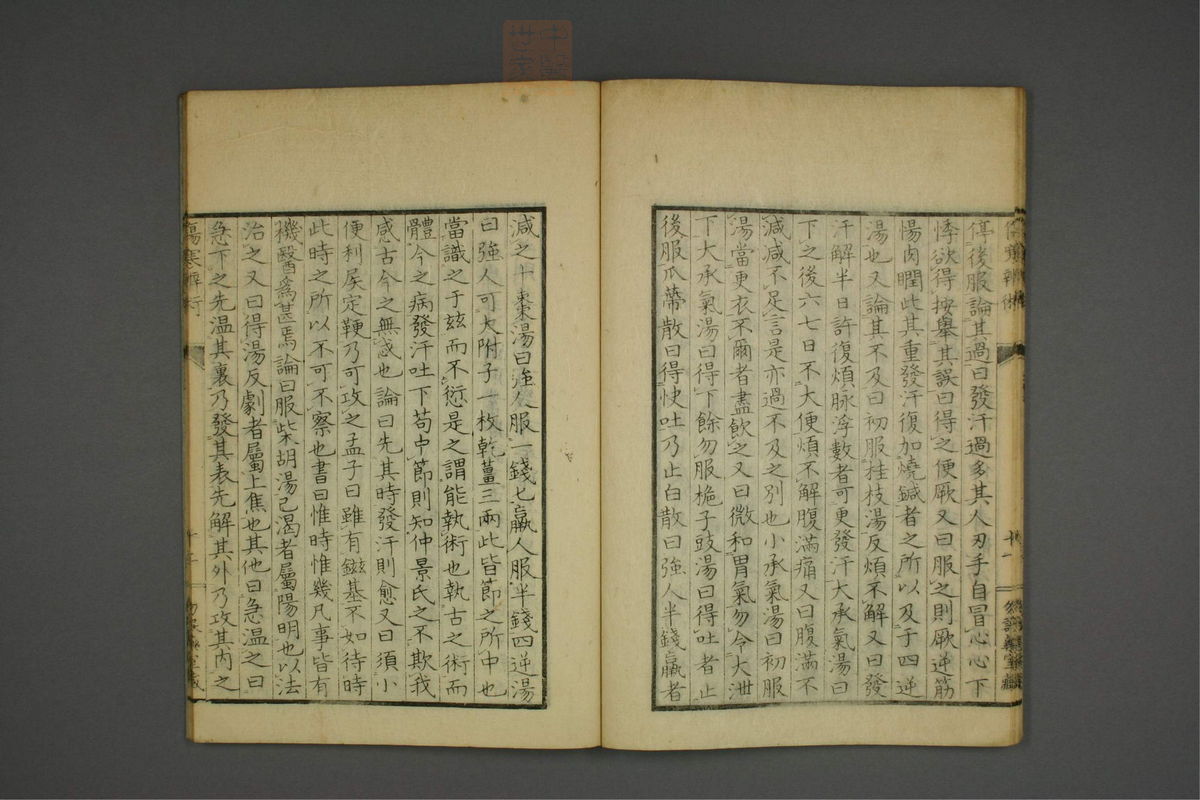 停後服論其過曰發汗過多其人叉手自冒心心下
悸欲得按舉其誤曰得之便厥又曰服之則厥逆筋
惕肉瞤此其重發汗復加燒鍼者之所以及于四逆
湯也又論其不及曰初服桂枝湯反煩不解又曰發
汗解半日許復煩脉浮數者可更發汗大承氣湯曰
下之後六七日不大便煩不解腹滿痛又曰腹滿不
減減不足言是亦過不及之別也小承氣湯曰初服
湯當更衣不爾者盡飲之又曰微和胃氣勿令大泄
下大承氣湯曰得下餘勿服梔子豉湯曰得吐者止
後服瓜蔕散曰得快吐乃止白散曰強人半錢羸者
減之十棗湯曰強人服一錢匕羸人服半錢四逆湯
曰強人可大附子一枚乾薑三兩此皆節之所中也
當識之于玆而不愆是之謂能執術也執古之術而
體今之病發汗吐下苟中節則知仲景氏之不欺我
感古今之無惑也論曰先其時發汗則愈又曰須小
便利屎定鞕乃可攻之孟子曰雖有鎡基不如待時
此時之所以不可不察也書曰惟時惟幾凡事皆有
機醫爲甚焉論曰服柴胡湯已渴者屬陽明也以法
治之又曰得湯反劇者屬上焦也其他曰急溫之曰
急下之先溫其裏乃發其表先解其外乃攻其內之
傷寒辨術